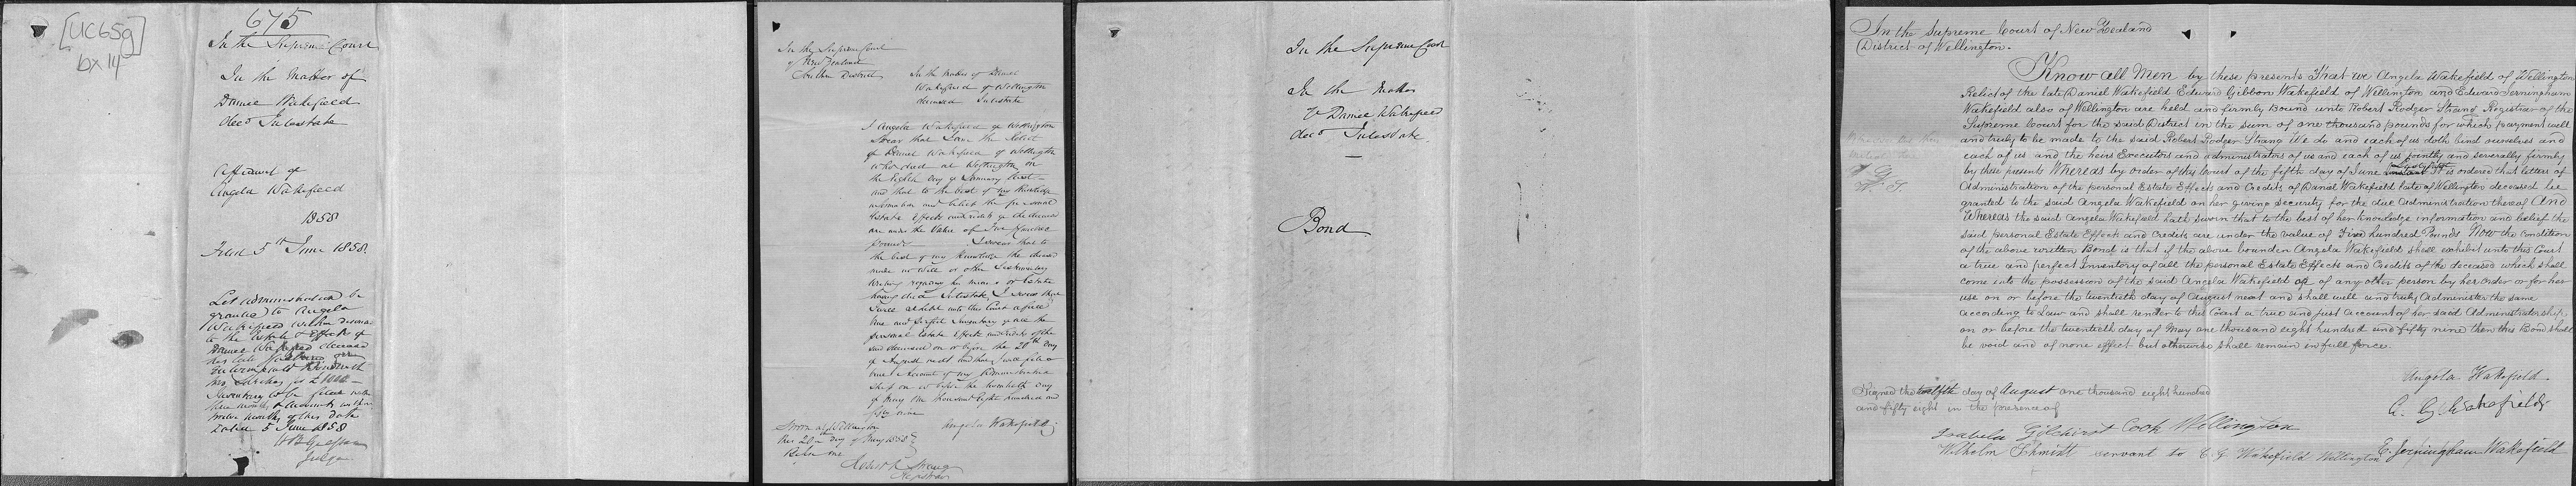 [UC65g]
bx 14
675
In the Supreme Court
In the Matter of
Daniel Wakefield
decd Intestate
Affidavit of
Angela Wakefield
1858
Filed 5th June 1858.
Let administration be
granted to Angela
Wakefield widow
to the Estate & Effects of
Daniel Wakefield deceased
her late husband
two sureties for £1000 —
Inventory to be filed within
three months & accounts within
twelve months of this date
Dated 5 June 1858
Judge
In the Supreme Court
of New Zealand
Southern District
In the Matter of Daniel
Wakefield of Wellington
deceased Intestate
I Angela Wakefield of Wellington
Swear that I am the Relict
of Daniel Wakefield of Wellington
who died at Wellington on
the eighth day of January last —
and that to the best of my knowledge
information and belief the personal
Estate Effects and credits of the deceased
are under the value of Five hundred
pounds I swear that to
the best of my knowledge the deceased
made no Will or other Testamentary
writing regarding his means or Estate
having died Intestate, I swear that
I will exhibit unto this Court a full
true and perfect Inventory of all the
personal Estate Effects and credits of the
said deceased on or before the 20th day
of August next and that I will file a
true Account of my Administrator
ship on or before the twentieth day
of May One thousand Eight hundred and
fifty nine
Sworn at Wellington
this 20th day of May 1858
Before me
Angela Wakefield
Robert R Strang
Registrar
In the Supreme Court
In the Matter
of Daniel Wakefield
decd Intestate
Bond
In the Supreme Court of New Zealand
District of Wellington.
Know all Men by these presents That we Angela Wakefield of Wellington
Relict of the late Daniel Wakefield Edward Gibbon Wakefield of Wellington and Edward Jerningham
Wakefield also of Wellington are held and firmly Bound unto Robert Rodger Strang Registrar of the
Supreme Court for the said District in the sum of one thousand pounds for which payment well
and truly to be made to the said Robert Rodger Strang We do and each of us doth bind ourselves and
each of us and the heirs Executors and administrators of us and each of us jointly and severally firmly
by these presents Whereas by order of this Court of the fifth day of June instant It is ordered that letters of
Administration of the personal Estate Effects and Credits of Daniel Wakefield late of Wellington deceased be
granted to the said Angela Wakefield on her giving security for the due Administration thereof And
Whereas the said Angela Wakefield hath sworn that to the best of her knowledge information and belief the
said personal Estate Effects and Credits are under the value of Five hundred Pounds Now the Condition
of the above written Bond is that if the above bounden Angela Wakefield shall exhibit unto this Court
a true and perfect Inventory of all the personal Estate Effects and Credits of the deceased which shall
come into the possession of the said Angela Wakefield or of any other person by her order or for her
use on or before the twentieth day of August next and shall well and truly Administer the same
according to Law and shall render to this Court a true and just account of her said Administratorship
on or before the twentieth day of May one thousand eight hundred and fifty nine then this Bond shall
be void and of none effect but otherwise shall remain in full force.
Signed the twelfth day of August one thousand eight hundred
and fifty eight in the presence of
Angela Wakefield
E. G. Wakefield
Isabella Gilchrist Cook Wellington
Wilhelm Schmitt servant to E G Wakefield Wellington
E. Jerningham Wakefield